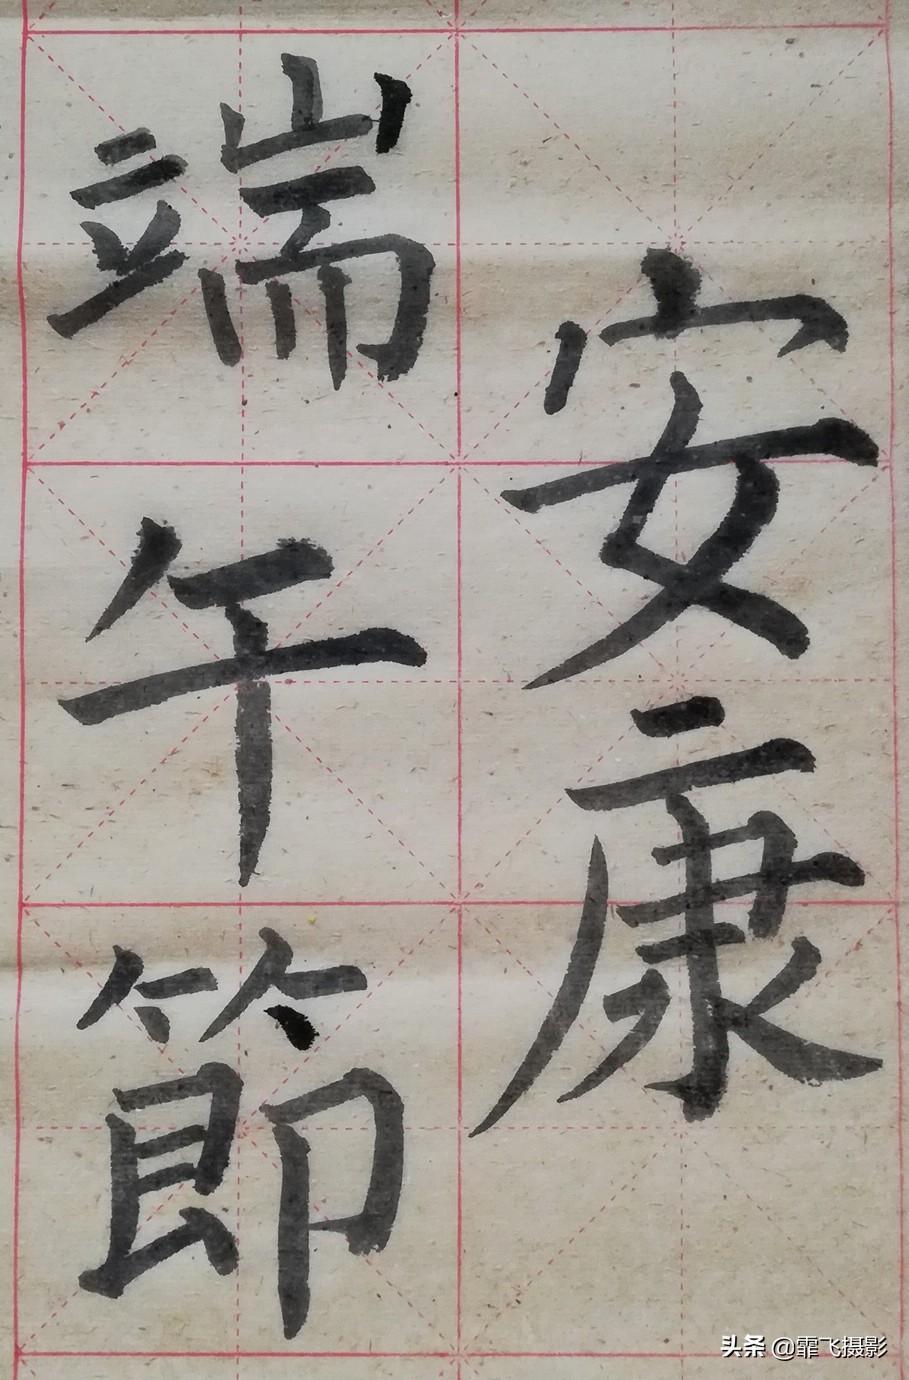 端午節
安康
头条 @霏飞摄影